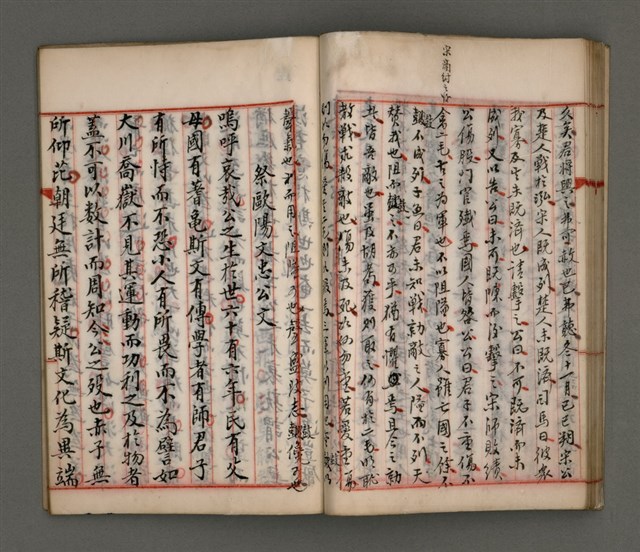 久矣君將興之弗可赦也已弗聽冬十一月己巳朔宋公
及楚人戰於泓宋人既成列楚人未既濟司馬曰彼眾
我寡及其未既濟也請擊之公曰不可既濟而未
成列又以告公曰未可既陳而後擊之宋師敗績
公傷股門官殲焉國人皆咎公公曰君子不重傷不
禽二毛古之為軍也不以阻隘也寡人雖亡國之餘不
鼓不成列子魚曰君未知戰勍敵之人隘而不列天
贊我也阻而鼓之不亦可乎猶有懼焉且今之勍
者皆吾敵也雖及胡耇獲則取之何有於二毛明恥
教戰求殺敵也傷未及死如何勿重若愛重傷
聲氣也利而用之阻隘可也聲盛致志鼓儳可也
祭歐陽文忠公文
嗚呼哀哉公之生於世六十有六年民有父
母國有蓍龜斯文有傳學者有師君子
有所恃而不恐小人有所畏而不為譬如
大川喬嶽不見其運動而功利之及於物者
蓋不可以數計而周知今公之歿也赤子無
所仰芘朝廷無所稽疑斯文化為異端